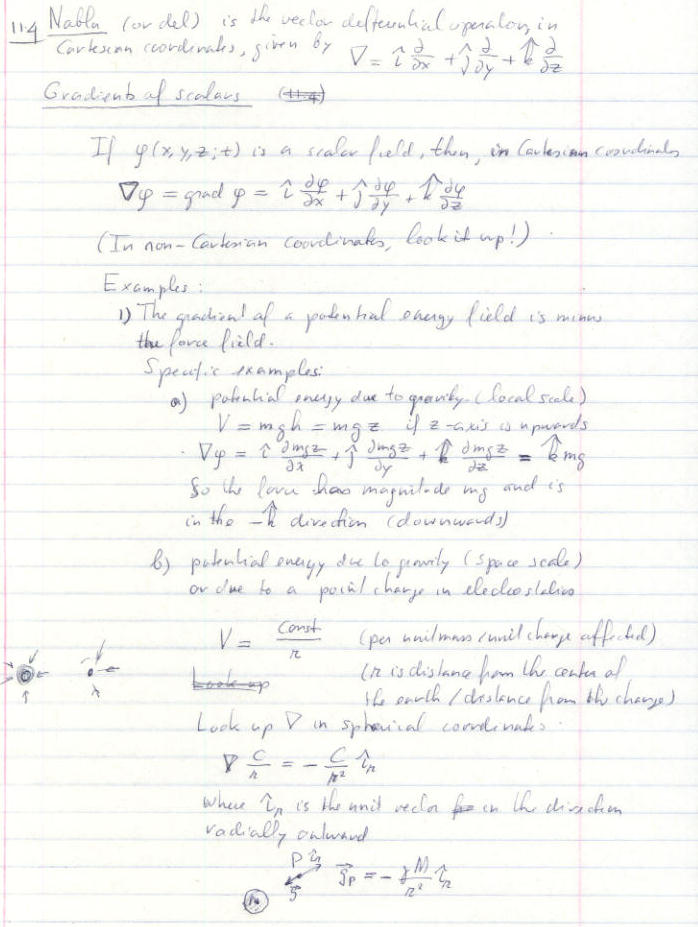 11.4 Nabla (or del) is the vector differential operator, in
Cartesian coordinates, given by ∇ = î ∂/∂x + ĵ ∂/∂y + k̂ ∂/∂z
Gradients of scalars (11.4)
If φ(x,y,z;t) is a scalar field, then, in Cartesian coordinates
∇φ = grad φ = î ∂φ/∂x + ĵ ∂φ/∂y + k̂ ∂φ/∂z
(In non-Cartesian coordinates, look it up!)
Examples:
1) The gradient of a potential energy field is minus
the force field.
Specific examples:
a) potential energy due to gravity (local scale)
V = mgh = mgz if z-axis is upwards
∇φ = î ∂mgz/∂x + ĵ ∂mgz/∂y + k̂ ∂mgz/∂z = k̂ mg
So the force has magnitude mg and is
in the -k̂ direction (downwards)
b) potential energy due to gravity (space scale)
or due to a point charge in electrostatics
V = Const/r (per unit mass/unit charge affected)
Look up (r is distance from the center of
the earth / distance from the charge)
Look up ∇ in spherical coordinates.
∇ C/r = - C/r² î_r
where î_r is the unit vector in the direction
radially outward
P î_r g⃗_P = - γM/r² î_r
M g⃗